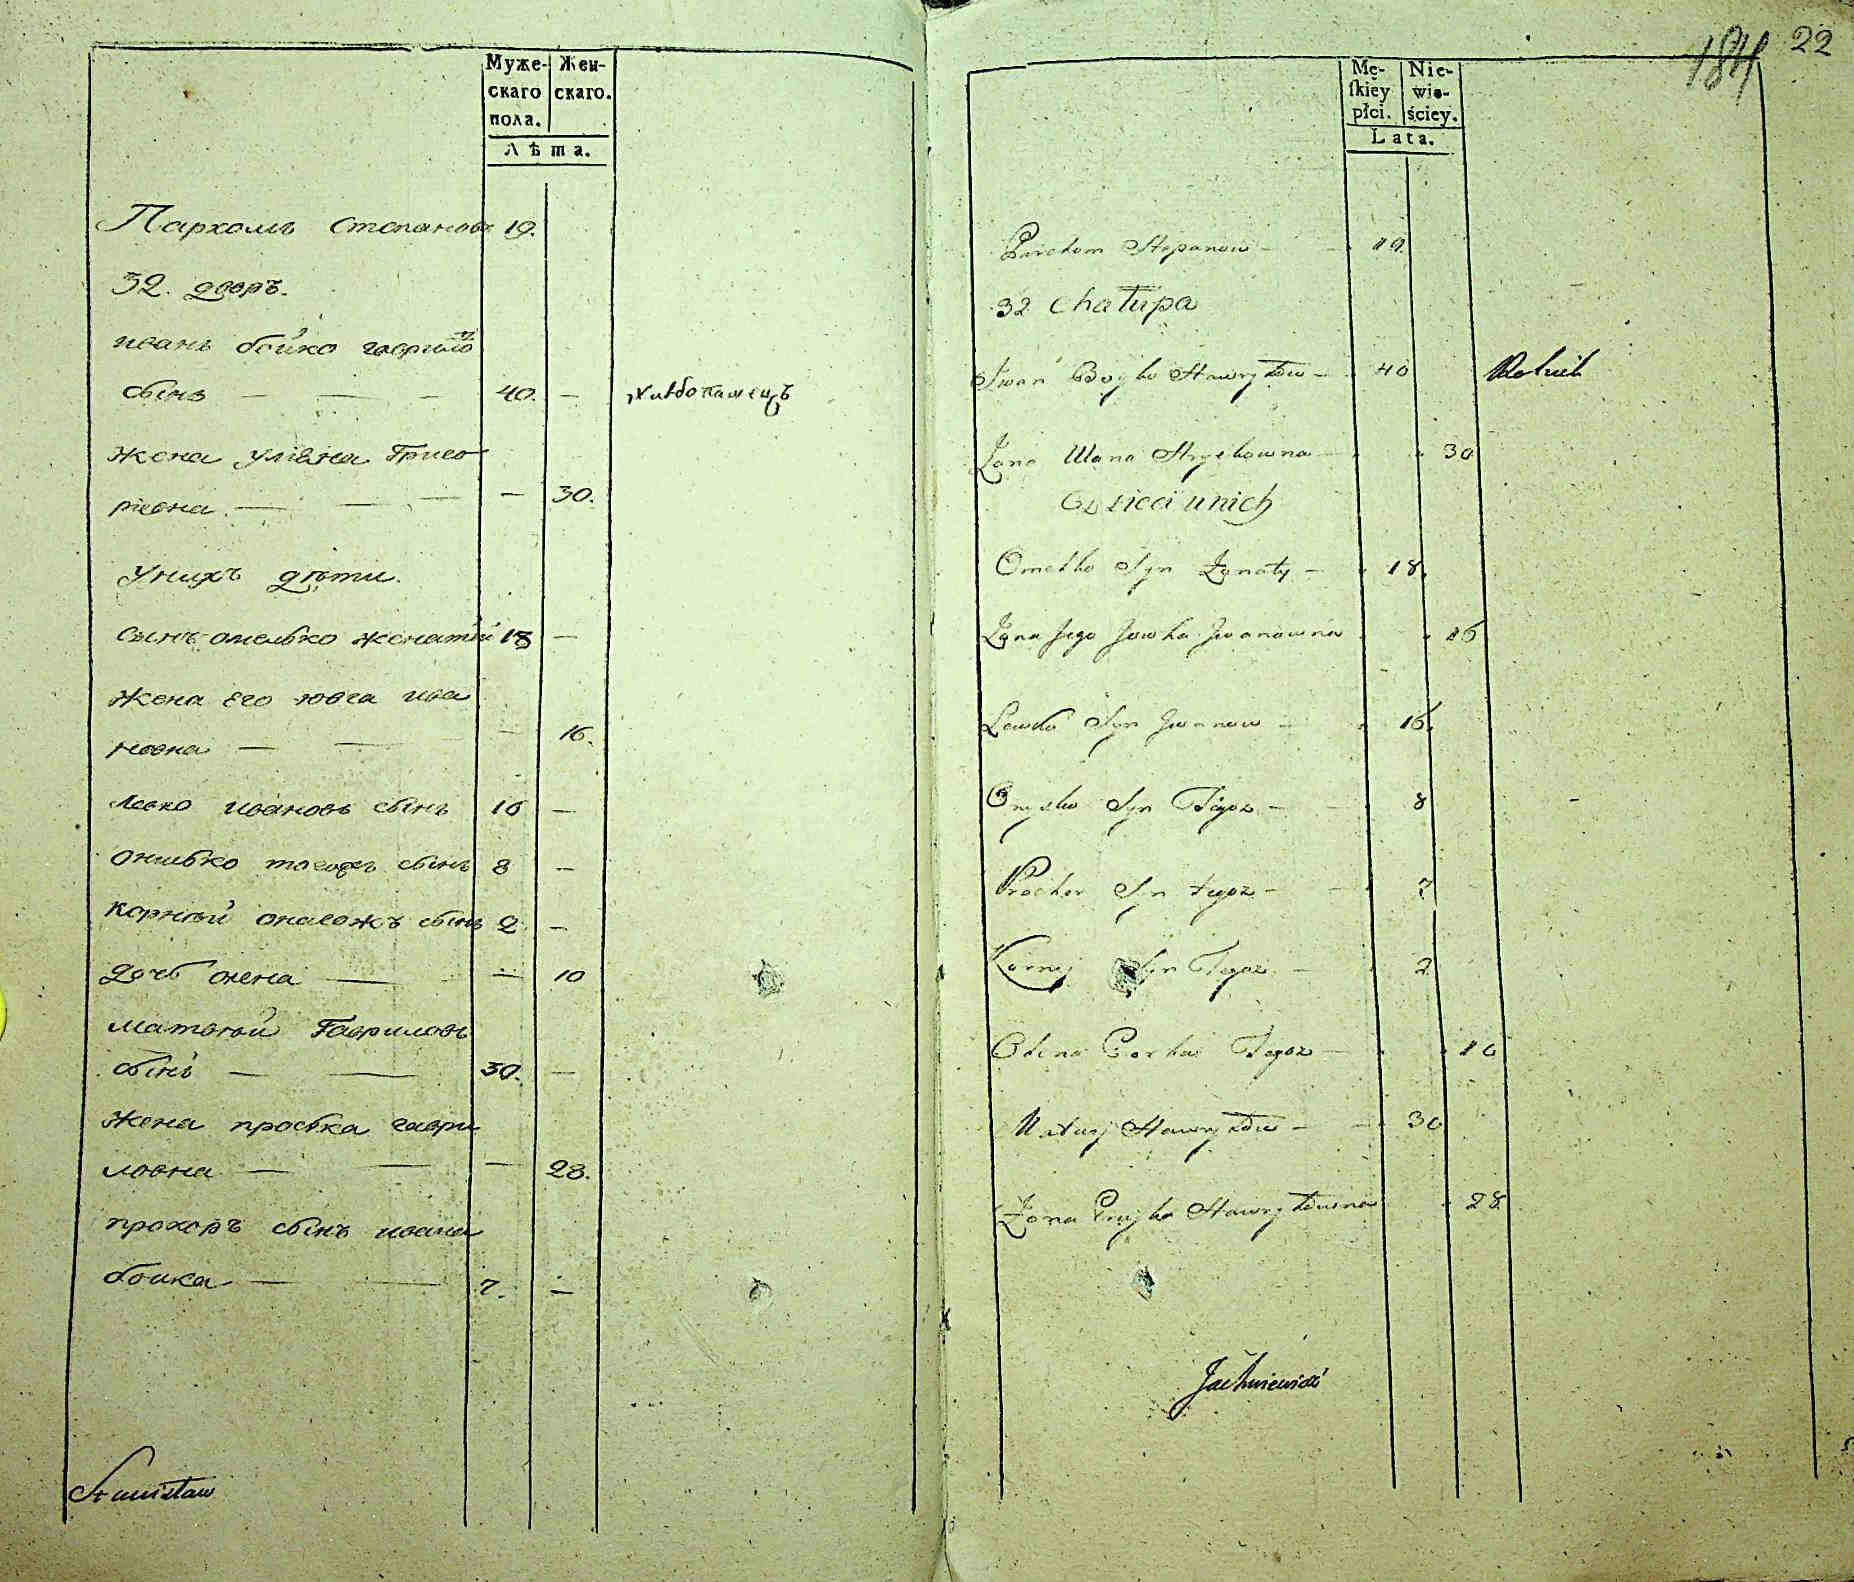 Муже-
скаго
пола.
Жен-
скаго.
Лѣта.
Пархомъ Степановъ 19.
32. дворъ.
иванъ бойко гавриловъ
сынъ — — — 40. — хлѣбопашецъ
жена уляна Григо
ріевна — — — — 30.
Унихъ дѣти.
сынъ омелько женатый 18 —
жена его ювга ива
новна — — — 16.
левко ивановъ сынъ 16 —
онисько тогожъ сынъ 8 —
корнѣй онагожъ сынъ 2 —
дочь олена — — 10
матвѣй Гавриловъ
сынъ — — 30. —
жена проська гаври
ловна — — — 28.
прохоръ сынъ ивана
бойка — — 7. —
Stanisław
184 22
Mę-
ſkiey
płci.
Nie-
wie-
ściey.
Lata.
Parchom Stepanow — — 19.
32 Chałupa
Iwan Boyko Hawryłow — 40 Rolnik
Żona Ulana Hryhorowna — 30
Dzieci u nich
Omelko Syn Żonaty — 18.
Żona Jego Jowha Iwanowna 16
Lewko Syn Iwanow — 16.
Onyśko Syn Tegoż — 8
Prochor Syn tegoż — 7
Korniy Syn Tegoż — 2
Olena Corka Tegoż — 10
Matwij Hawryłow — — 30
Żona Prośka Hawryłowna 28
Jachniewicz